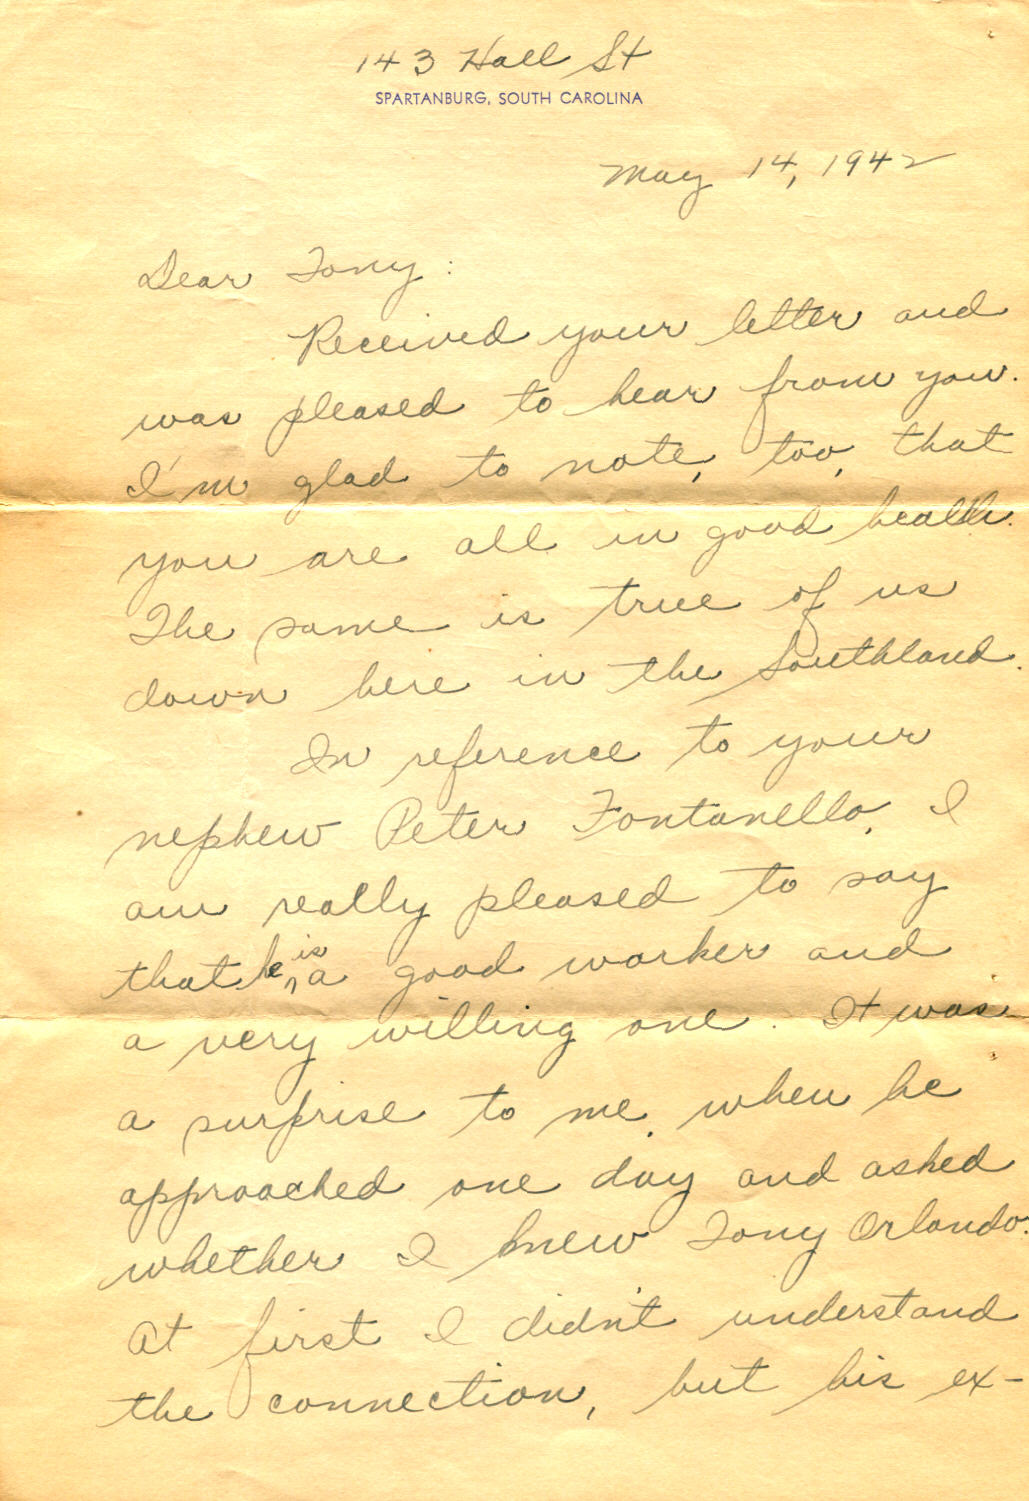 143 Hall St
SPARTANBURG, SOUTH CAROLINA
May 14, 1942
Dear Tony:
Received your letter and
was pleased to hear from you.
I'm glad to note, too, that
you are all in good health.
The same is true of us
down here in the Southland.
In reference to your
nephew Peter Fontanello, I
am really pleased to say
that he is a good worker and
a very willing one. It was
a surprise to me when he
approached one day and asked
whether I knew Tony Orlando.
At first I didn't understand
the connection, but his ex-